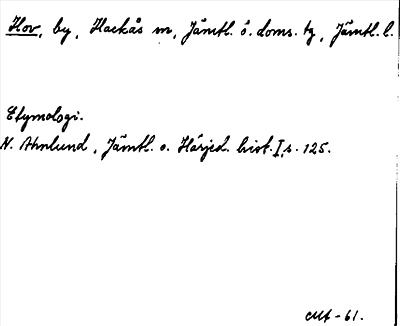 Hov, by, Hackås sn, Jämtl. ö. doms. tg, Jämtl. l.
Etymologi.
N. Ahnlund, Jämtl. o. Härjed. hist. I, s. 125.
-61.